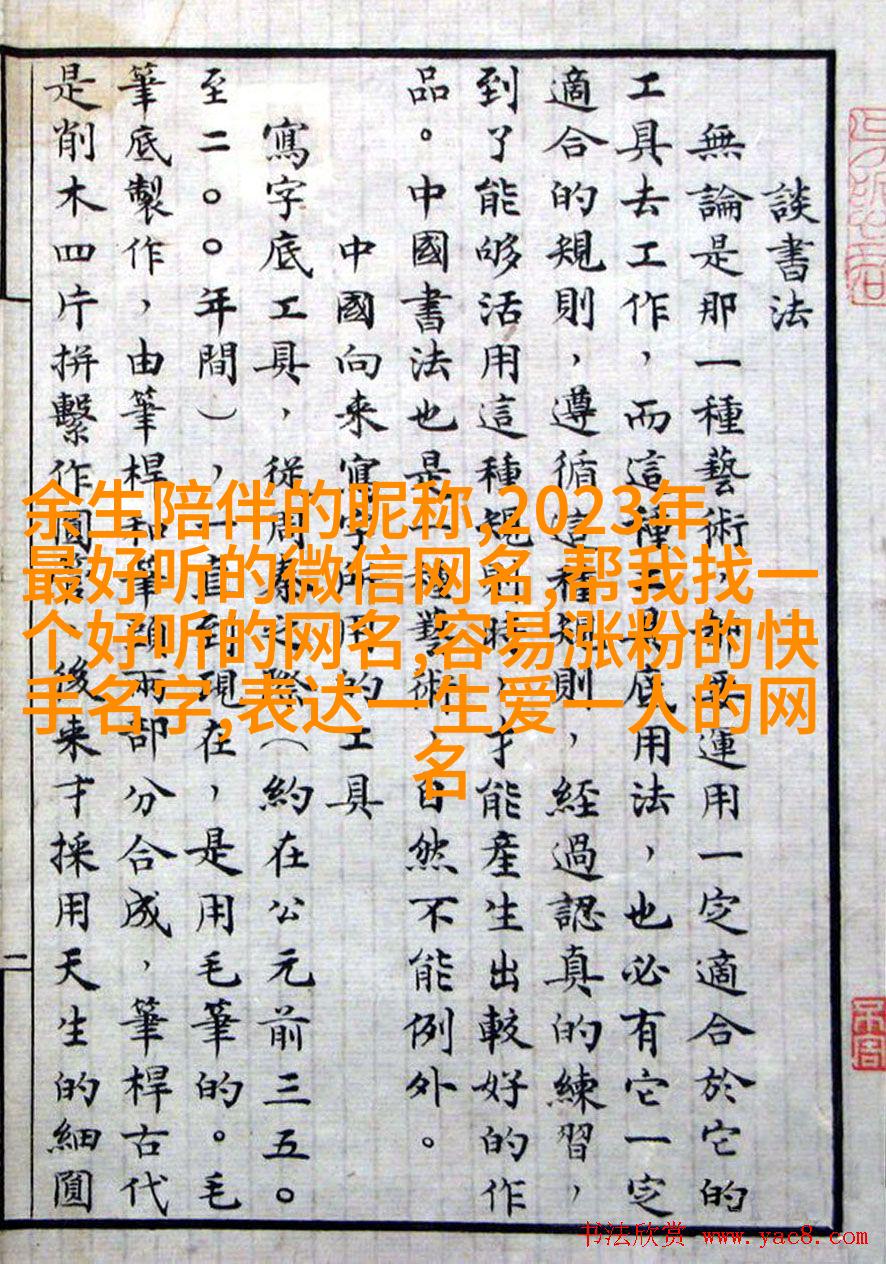 談書法
無論是那一種藝術，都要運用一定適合於它的
工具去工作，而這種工具底用法，也必有它一定
適合的規則，遵循這種規則，經過認真的練習，
到了能够活用這種規則時，才能產生出較好的作
品。中國書法也是一種藝術，自然不能例外。
中國向來寫字所用的工具
寫字底工具，從周秦之際（約在公元前三五〇
至二〇〇年間），一直到現在，是用毛筆的。毛
筆底製作，由筆桿和筆頭兩部分合成，筆桿古代
是削木四片拼繫作圓筒，後來才採用天生的細圓
二
余生陪伴的昵称,2023年
最好听的微信网名,帮我找一
个好听的网名,容易涨粉的快
手名字,表达一生爱一人的网
名
书法欣赏 www.yac8.com